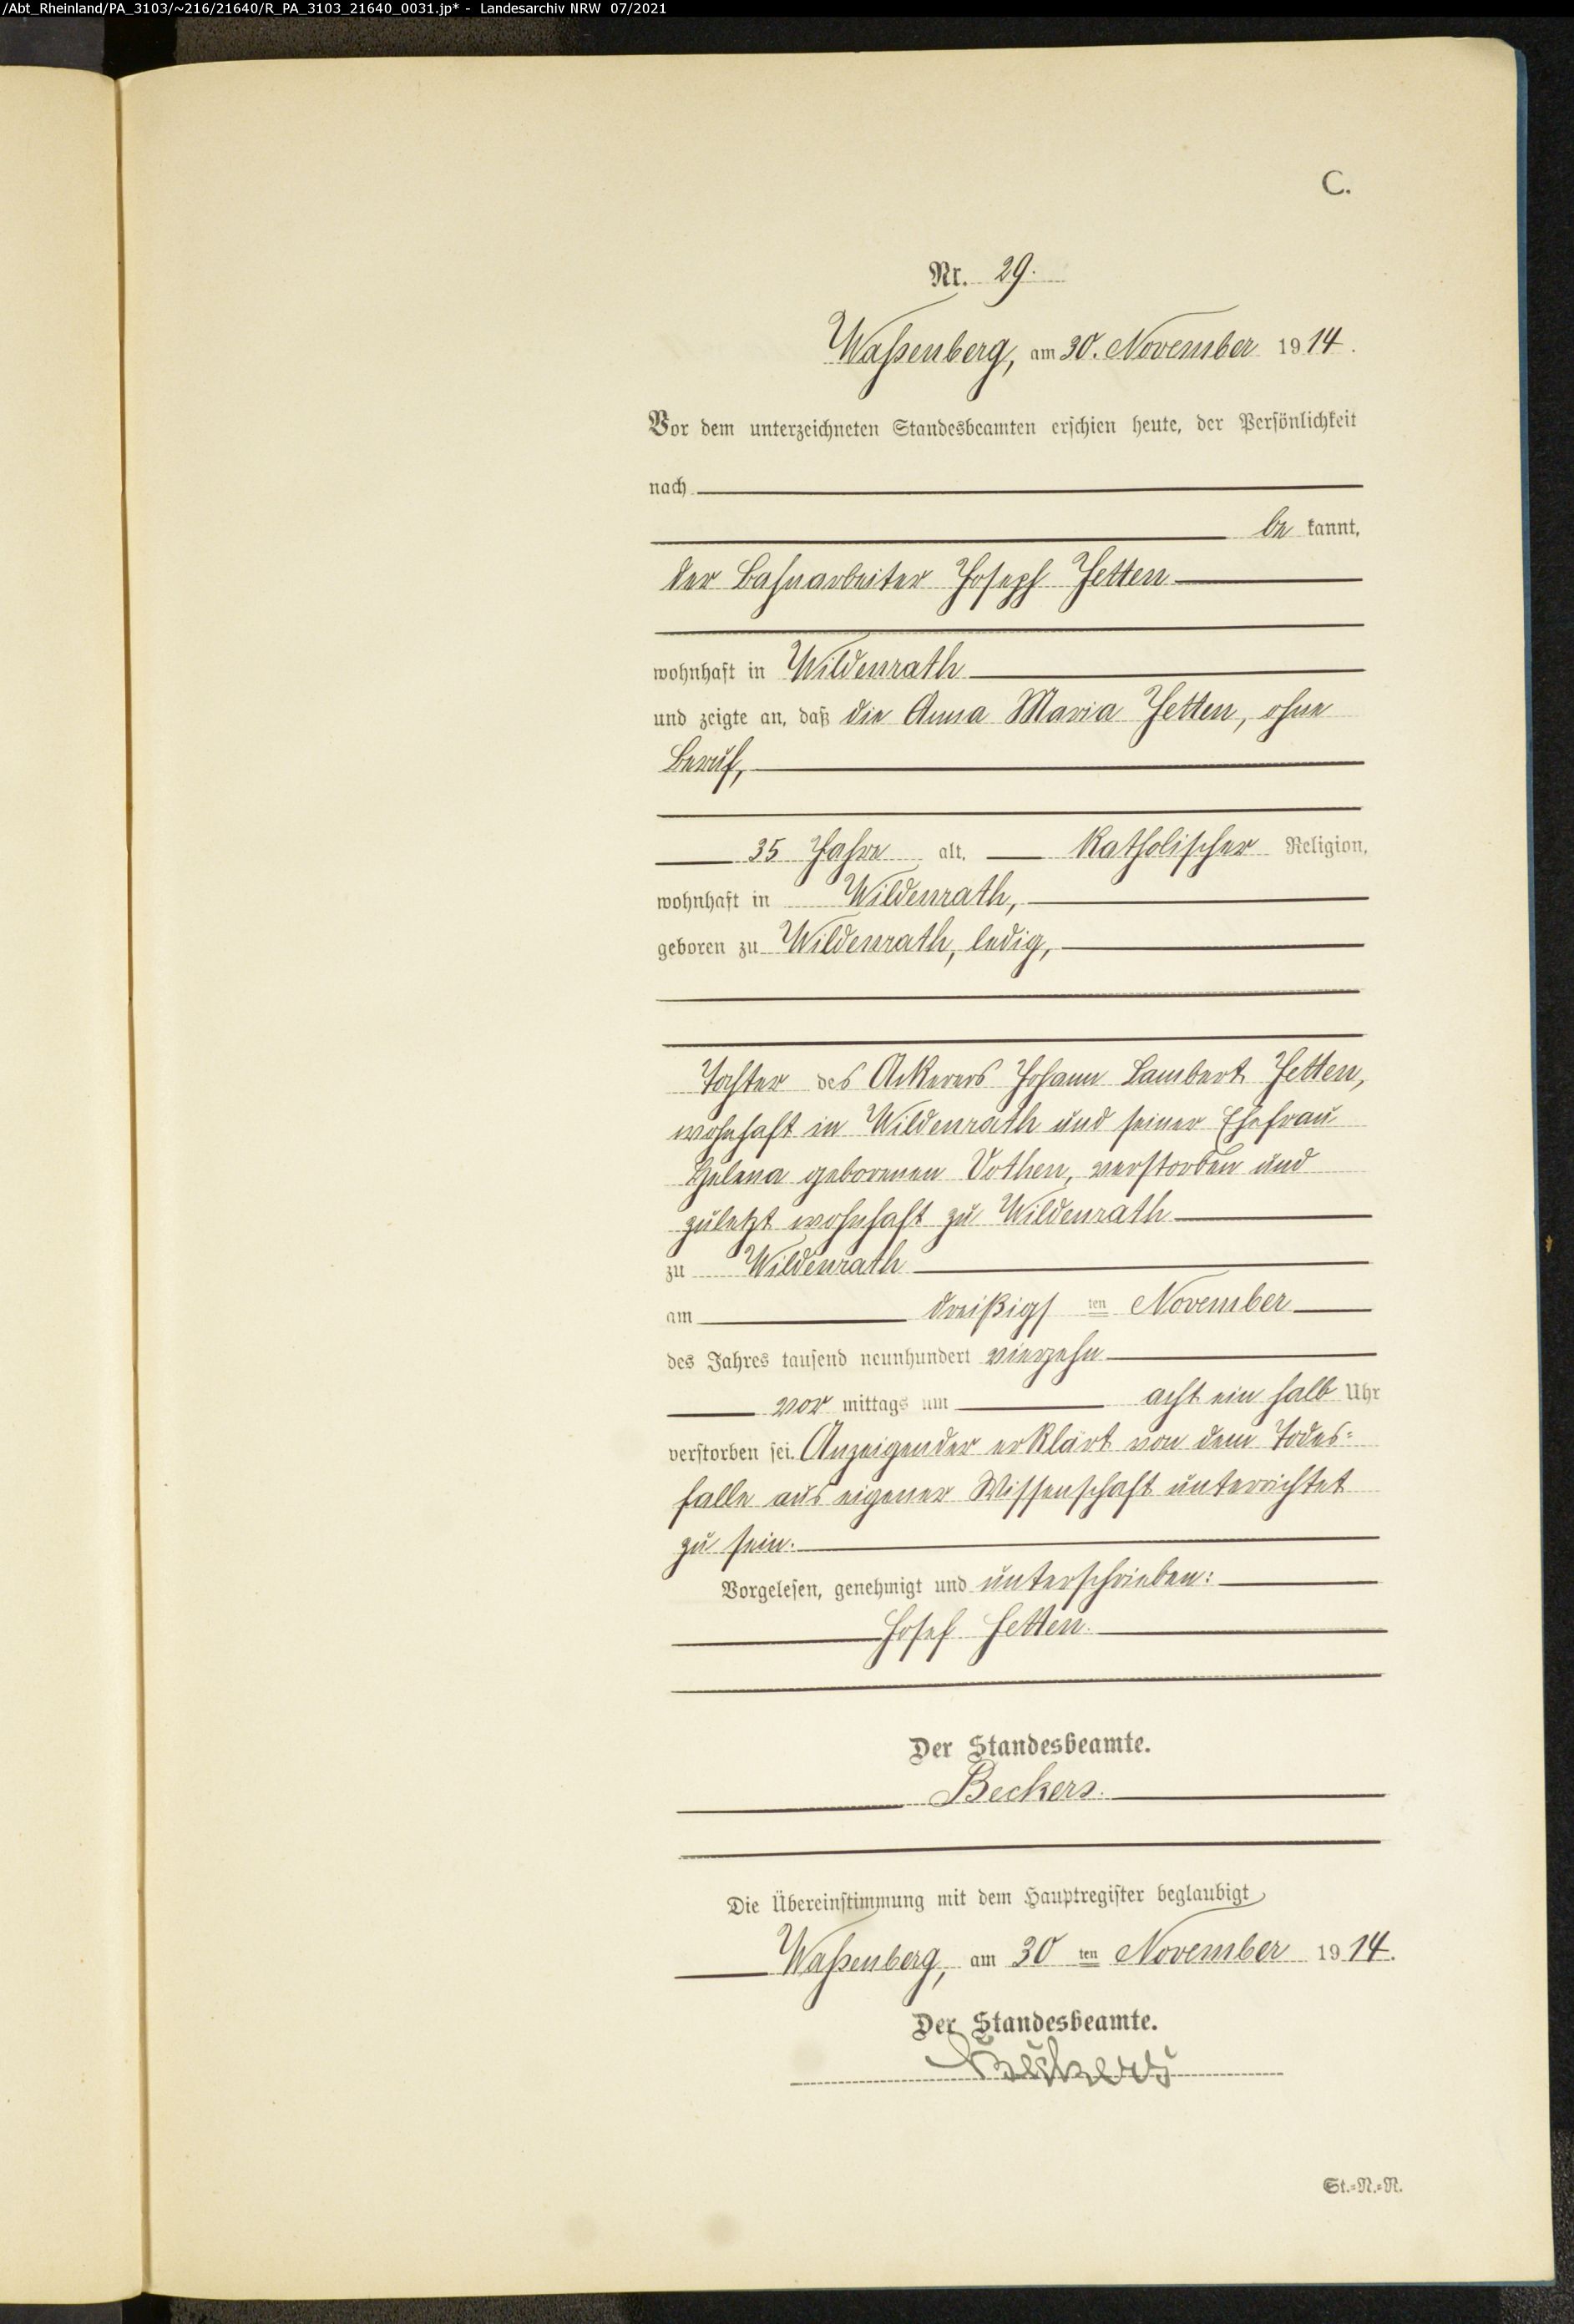 /Abt_Rheinland/PA_3103/~216/21640/R_PA_3103_21640_0031.jp* - Landesarchiv NRW 07/2021
C.
Nr. 29.
Waßenberg, am 30. November 1914.
Vor dem unterzeichneten Standesbeamten erschien heute, der Persönlichkeit
nach
be kannt,
der Bahnarbeiter Joseph Jetten
wohnhaft in Wildenrath
und zeigte an, daß die Anna Maria Jetten, ohne
Beruf,
35 Jahre alt, Katholischer Religion,
wohnhaft in Wildenrath,
geboren zu Wildenrath, ledig,
Tochter des Ackerers Johann Lambert Jetten,
wohnhaft in Wildenrath und seiner Ehefrau
Helena geborenen Vothen, verstorben und
zuletzt wohnhaft zu Wildenrath
zu Wildenrath
am dreißigs ten November
des Jahres tausend neunhundert vierzehn
vor mittags um acht ein halb Uhr
verstorben sei. Anzeigender erklärt von dem Todes=
falle aus eigener Wissenschaft unterrichtet
zu sein.
Vorgelesen, genehmigt und unterschrieben:
Josef Jetten.
Der Standesbeamte.
Beckers.
Die Übereinstimmung mit dem Hauptregister beglaubigt
Waßenberg, am 30 ten November 1914.
Der Standesbeamte.
Beckers
St.=N.=N.